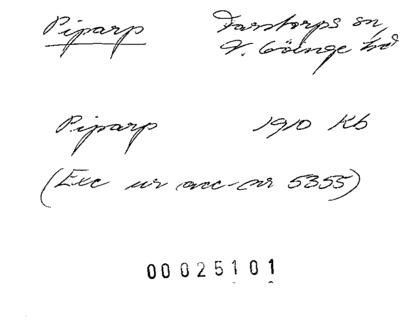 Piparp
Farstorps sn,
V. Göinge hd
Piparp 1910 Kb
(Exc ur acc-nr 5355)
00025101